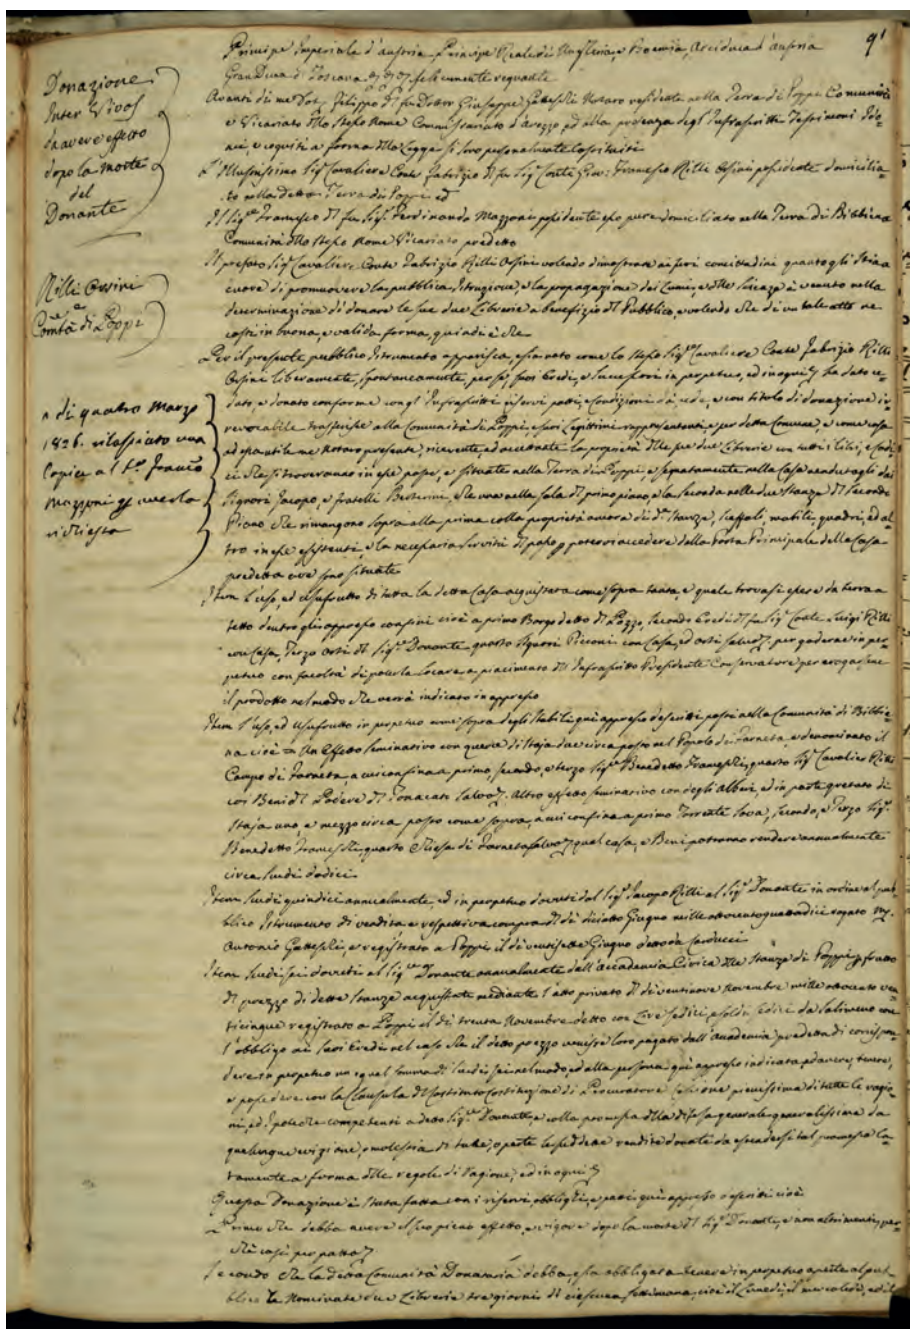 91
Donazione
Inter Vivos
da avere effetto
dopo la morte
del
Donante
Rilli Orsini
e
Com.tà di Poppi
a dì quatro Marzo
1826. rilasciato una
Copia a l Sr. Franco
Mazzoni
richiesta
Principe Imperiale d'Austria Principe Reale di Ungheria, e Boemia, Arciduca d'Austria
Gran Duca di Toscana felicemente regnante
Avanti di me Dot. Filippo del fu Dottor Giuseppe Gatteschi Notaro residente nella Terra di Poppi Comunità
e Vicariato dello stesso nome Commissariato d'Arezzo ed alla presenza degl'Infrascritti Testimoni Ido=
nei, e cogniti a forma della Legge si sono personalmente costituiti
L'Illustrissimo Sig. Cavaliere Conte Fabrizio del fu Sig. Conte Gio: Francesco Rilli Orsini possidente domicilia=
to nella detta Terra di Poppi ed
Il Sig. Francesco del fu Sig. Ferdinando Mazzoni possidente esso pure domiciliato nella Terra di Bibbiena
Comunità dello stesso nome Vicariato predetto
Il prefato Sig. Cavaliere Conte Fabrizio Rilli Orsini volendo dimostrare ai suoi concittadini quanto gli stia a
cuore di promuovere la pubblica Istruzione, e la propagazione dei Lumi, e delle Scienze è venuto nella
determinazione di donare le sue due Librerie a benefizio del Pubblico, e volendo che di un tale atto ne
costi in buona, e valida forma, quindi è che
Per il presente pubblico Istrumento apparisca, e sia noto come lo stesso Sig. Cavaliere Conte Fabrizio Rilli
Orsini liberamente, spontaneamente, per se, suoi Eredi, e Successori in perpetuo, ed in ogni ha dato ce=
duto, e donato conforme con gl'Infrascritti riservi patti, e condizioni dà, cede, e con titolo di donazione ir=
revocabile trasferisce alla Comunità di Poppi, e suoi Legittimi rappresentanti, e per detta Comune, e come cosa
ad essa utile me Notaro presente, ricevente, ed accettante la proprietà delle sue due Librerie con tutti i libri, e Codi=
ci che si troveranno in esse poste, e situate nella Terra di Poppi, e separatamente nella Casa vendutagli dai
Signori Jacopo, e fratelli che una nella sala del primo piano, e la seconda nelle due stanze del secondo
Piano che rimangono sopra alla prima colla proprietà ancora di d.e stanze, scaffali, mobili, quadri, ed al=
tro in esse esistenti, e la necessaria servitù del passo per potervi accedere dalla Porta Principale della Casa
predetta ove sono situate
Item l'uso, ed usufrutto di tutta la detta Casa acquistata come sopra tanta, e quale trovasi essere da terra a
tetto dentro gli appresso confini cioè a primo Borgo detto il Pozzo, secondo Eredi del fu Sig. Conte Luigi Rilli
con Casa, Terzo Orti del Sig. Donante, quarto Signori Picconi con Casa, ed orti salvo per goderne in per=
petuo con facoltà di poterla locare a piacimento del Infrascritto Presidente Conservatore per erogarsene
il prodotto nel modo che verrà indicato in appresso
Item l'uso, ed usufrutto in perpetuo come sopra degli stabili qui appresso descritti posti nella Comunità di Bibbie=
na cioè = Un Effetto seminativo con querce di staja due circa posto nel Popolo di Farneta, e denominato il
Campo di Farneta a cui confina a primo, secondo, e terzo Sig. Benedetto Franceschi, quarto Sig. Cavalier Rilli
coi Beni del Podere del salvo. Altro effetto seminativo con degli Alberi, ed in parte gretato di
staja uno, e mezzo circa posto come sopra, a cui confina a primo Torrente Sova, secondo, e Terzo Sig.
Benedetto Franceschi, quarto Chiesa di Farneta salvo qual casa, e Beni potranno rendere annualmente
circa scudi dodici
Item scudi quindici annualmente, ed in perpetuo dovuti dal Sig. Jacopo Rilli al Sig. Donante in ordine al pub=
blico Istrumento di vendita e respettiva compra del dì diciotto Giugno mille ottocento quattordici rogato
Antonio Gatteschi, e registrato a Poppi il dì ventisette Giugno detto da Carducci
Item scudi sei dovuti al Sig. Donante annualmente dall'Accademia Civica delle Stanze di Poppi per frutto
del prezzo di dette stanze acquistate mediante l'atto privato del dì ventinove Novembre mille ottocento ven=
ticinque registrato a Poppi il dì trenta Novembre detto con Lire sedici, e soldi sedici da Salineno con
l'obbligo ai suoi Eredi nel caso che il detto prezzo venisse loro pagato dall'Accademia predetta di corrispon=
dere in perpetuo un egual somma di scudi sei nel modo, ed alla persona qui appresso indicata, ed avere, tenere,
e possedere con la Clausula del Costituto Costituzione di Procuratore Cessione pienissima di tutte le ragio=
ni, ed Ipoteche competenti a detto Sig. Donante, e colla promessa della difesa generale generalissima da
qualunque evizione, o molestia di tutte, o parte le suddette rendite donate da estendersi tal promessa la=
tamente a forma delle regole di Ragione, ed in ogni
Questa Donazione è stata fatta con i riservi, obblighi, e patti qui appresso descritti cioè
Primo che debba avere il suo pieno effetto, e vigore dopo la morte del Sig. Donante, e non altrimenti, per=
chè così per patto
Secondo che la detta Comunità Donataria debba, e sia obbligata tenere in perpetuo aperte al pub=
blico le Nominate due Librerie tre giorni di ciascuna settimana, cioè il Lunedì, il mercoledì, ed il